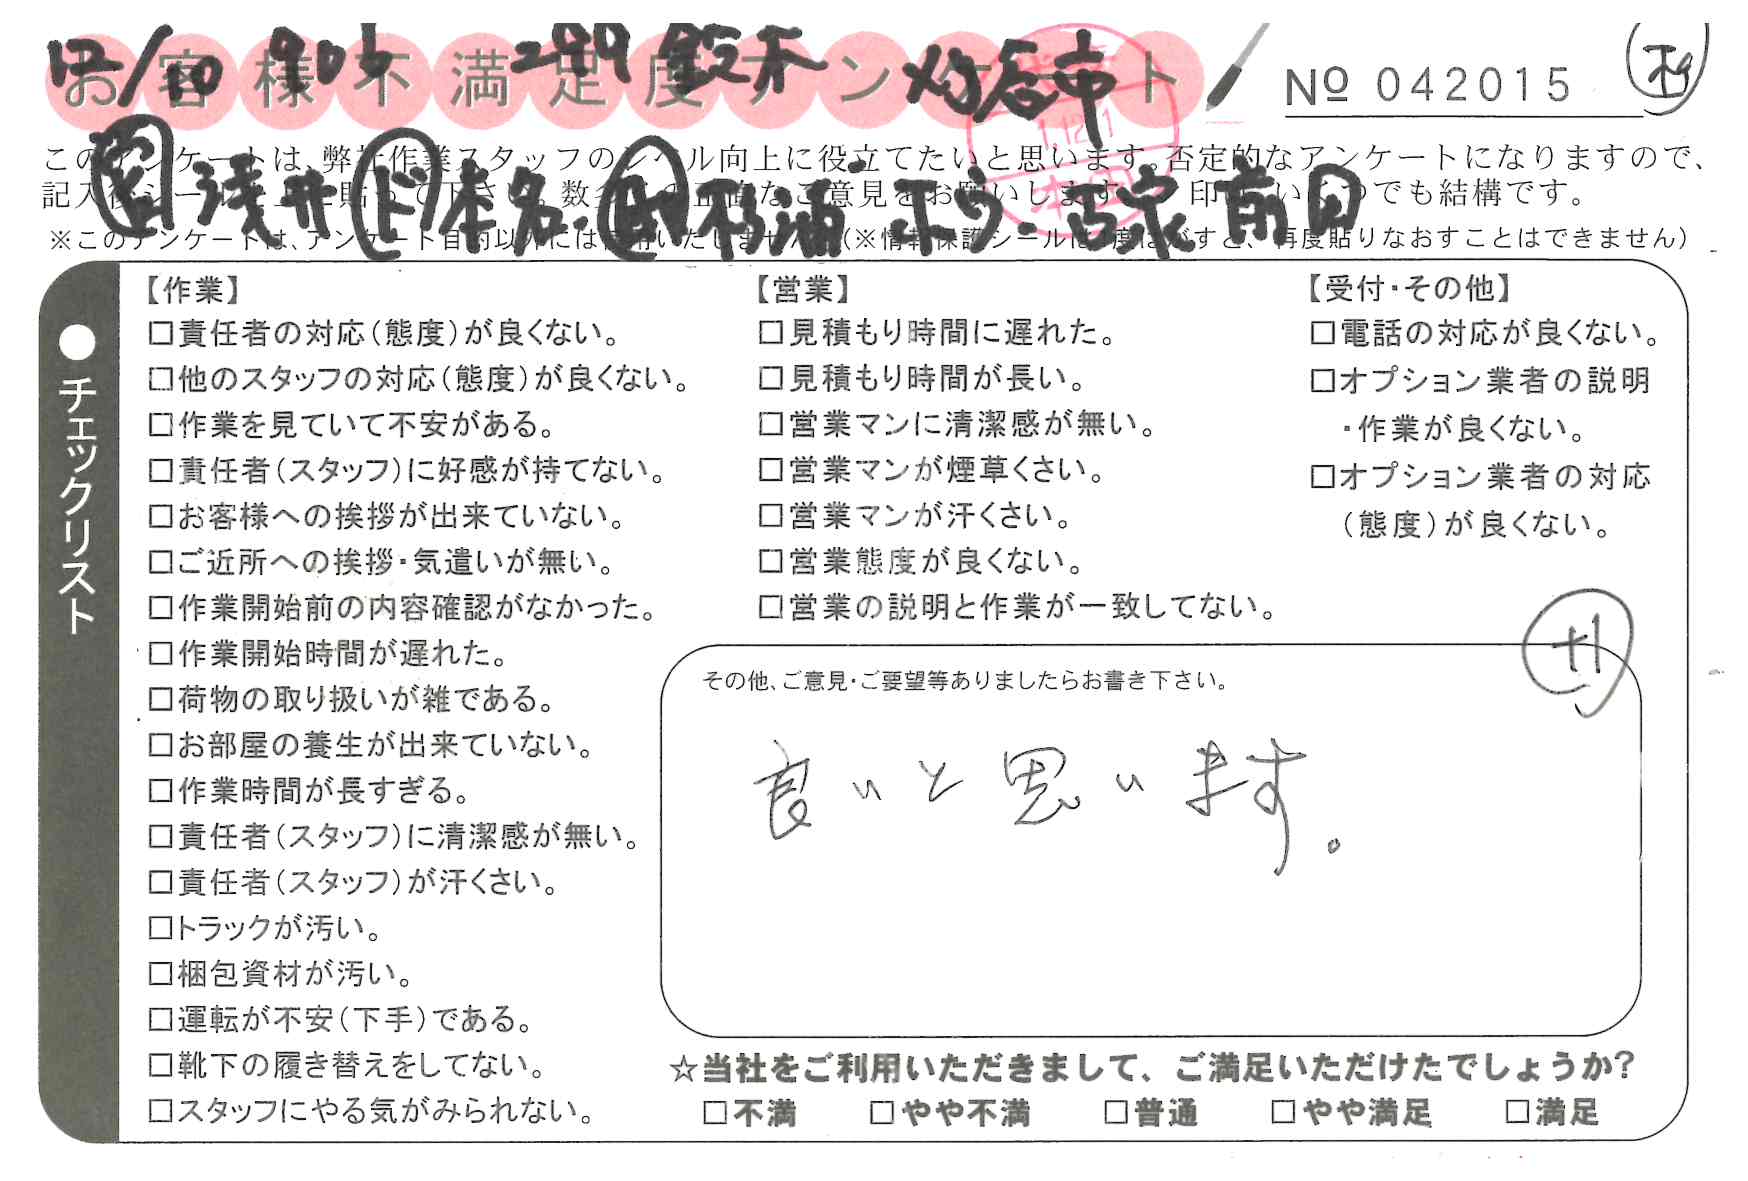 お客様不満足度アンケート
№ 042015
12/10 鈴木 刈谷市
このアンケートは、弊社作業スタッフのレベル向上に役立てたいと思います。否定的なアンケートになりますので、
浅井 本名 杉浦 古家 前田
※このアンケートは、アンケート目的以外には使用いたしません。(※情報保護シールは1度はがすと、再度貼りなおすことはできません)
●チェックリスト
【作業】
□責任者の対応(態度)が良くない。
□他のスタッフの対応(態度)が良くない。
□作業を見ていて不安がある。
□責任者(スタッフ)に好感が持てない。
□お客様への挨拶が出来ていない。
□ご近所への挨拶・気遣いが無い。
□作業開始前の内容確認がなかった。
□作業開始時間が遅れた。
□荷物の取り扱いが雑である。
□お部屋の養生が出来ていない。
□作業時間が長すぎる。
□責任者(スタッフ)に清潔感が無い。
□責任者(スタッフ)が汗くさい。
□トラックが汚い。
□梱包資材が汚い。
□運転が不安(下手)である。
□靴下の履き替えをしてない。
□スタッフにやる気がみられない。
【営業】
□見積もり時間に遅れた。
□見積もり時間が長い。
□営業マンに清潔感が無い。
□営業マンが煙草くさい。
□営業マンが汗くさい。
□営業態度が良くない。
□営業の説明と作業が一致してない。
【受付・その他】
□電話の対応が良くない。
□オプション業者の説明
・作業が良くない。
□オプション業者の対応
(態度)が良くない。
+1
その他、ご意見・ご要望等ありましたらお書き下さい。
良いと思います。
☆当社をご利用いただきまして、ご満足いただけたでしょうか?
□不満 □やや不満 □普通 □やや満足 □満足